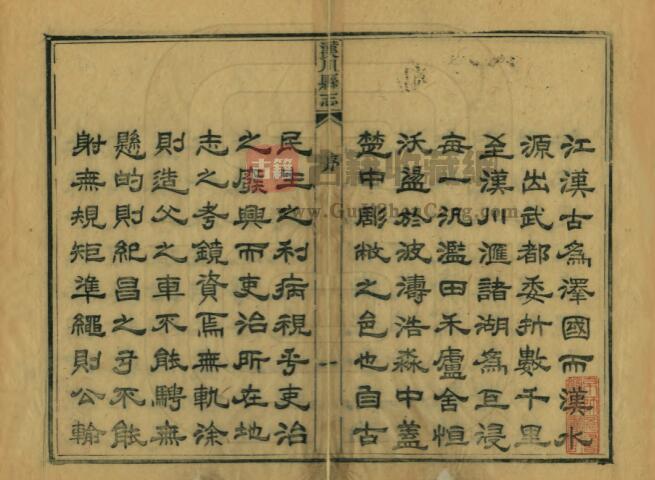 江漢古為澤國而漢水
源出武都委折數千里
至漢川滙諸湖為巨浸
每一汎濫田禾廬舍恒
沃盪於波濤浩淼中蓋
楚中彫敝之邑也自古
漢川縣志
序
一
民生之利病視乎吏治
之廢興而吏治所在地
志之考鏡資焉無軌涂
則造父之車不能騁無
懸的則紀昌之弓不能
射無規矩準繩則公輸
古籍